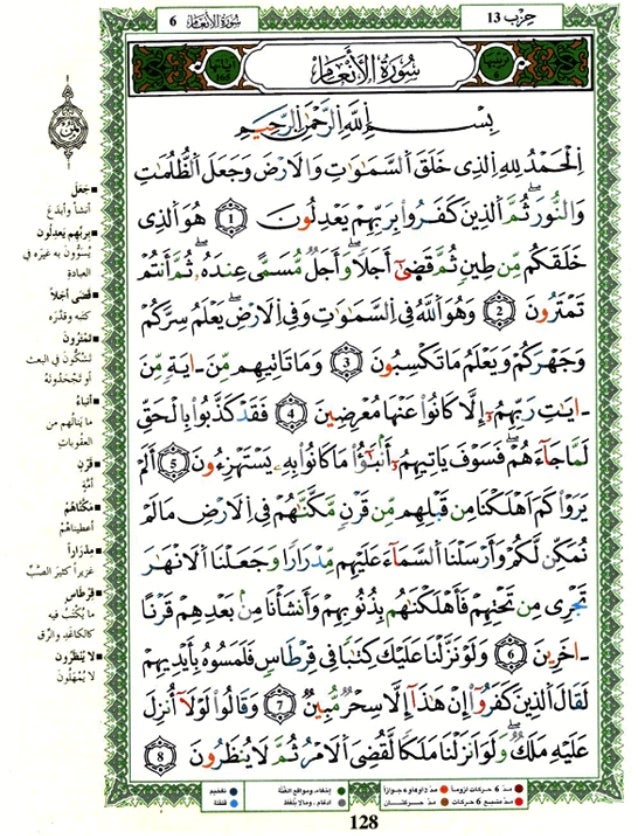 حزب 13
سورة الأنعام 6
سُورَةُ الأَنْعَامِ
بِسْمِ اِللَّهِ اِلرَّحْمَٰنِ اِلرَّحِيمِ
اِلْحَمْدُ لِلهِ اِلذِے خَلَقَ اَلسَّمَٰوَٰتِ وَالَارْضَ وَجَعَلَ اَلظُّلُمَٰتِ
وَالنُّورَۖ ثُمَّ اَلذِينَ كَفَرُواْ بِرَبِّهِمْ يَعْدِلُونَ (1) هُوَ اَلذِے
خَلَقَكُم مِّن طِينٖ ثُمَّ قَضَىٰٓ أَجَلاٗۖ وَأَجَلٞ مُّسَمًّى عِندَهُۥۖ ثُمَّ أَنتُمْ
تَمْتَرُونَ (2) وَهُوَ اَللَّهُ فِے اِلسَّمَٰوَٰتِ وَفِے اِلَارْضِۖ يَعْلَمُ سِرَّكُمْ
وَجَهْرَكُمْ وَيَعْلَمُ مَا تَكْسِبُونَ (3) وَمَا تَاتِيهِم مِّنَ ـايَةٖ مِّنَ
ـايَٰتِ رَبِّهِمُۥٓ إِلَّا كَانُواْ عَنْهَا مُعْرِضِينَ (4) فَقَدْ كَذَّبُواْ بِالْحَقِّ
لَمَّا جَآءَهُمْۖ فَسَوْفَ يَاتِيهِمُۥٓ أَنۢبَٰٓؤُاْ مَا كَانُواْ بِهِۦ يَسْتَهْزِءُونَ (5) أَلَمْ
يَرَوْاْ كَمَ اَهْلَكْنَا مِن قَبْلِهِم مِّن قَرْنٖ مَّكَّنَّٰهُمْ فِے اِلَارْضِ مَا لَمْ
نُمَكِّن لَّكُمْ وَأَرْسَلْنَا اَلسَّمَآءَ عَلَيْهِم مِّدْرَاراٗ وَجَعَلْنَا اَلَانْهَٰرَ
تَجْرِے مِن تَحْتِهِمْ فَأَهْلَكْنَٰهُم بِذُنُوبِهِمْ وَأَنشَأْنَا مِنۢ بَعْدِهِمْ قَرْناً
ـاخَرِينَ (6) وَلَوْ نَزَّلْنَا عَلَيْكَ كِتَٰباٗ فِے قِرْطَاسٖ فَلَمَسُوهُ بِأَيْدِيهِمْ
لَقَالَ اَلذِينَ كَفَرُوٓاْ إِنْ هَٰذَآ إِلَّا سِحْرٞ مُّبِينٞ (7) وَقَالُواْ لَوْلَآ أُنزِلَ
عَلَيْهِ مَلَكٞۖ وَلَوَ اَنزَلْنَا مَلَكاٗ لَّقُضِيَ اَلَامْرُ ثُمَّ لَا يُنظَرُونَ (8)
■ جَعَلَ
أنشأ وأبدَعَ
■ بربّهم يَعدِلُون
يُسَوُّون به غيرَه في
العبادةِ
■ قضى أجَلاً
كتبَه وقدَّرَه
■ تَمْتَرُونَ
تَشُكُّونَ في البعث
أو تَجْحَدُونَهُ
■ أنباءُ
ما يَنالُهم من
العقوباتِ
■ قَرْنٍ
أُمَّةٍ
■ مَكَّنَّاهُمْ
أعطيناهُمْ
■ مِدْرَاراً
غَزيراً كثيرَ الصَّبِّ
■ قِرْطَاسٍ
ما يُكْتَبُ فيه
كالكاغَدِ والرَّقِّ
■ لا يُنظَرُون
لا يُمْهَلُونَ
مدّ 6 حركات لزوماً مدّ 2 أو 4 أو 6 جوازاً
مدّ مشبع 6 حركات مدّ حركتان
إخفاء، ومواقع الغنّة
ادغام، وما لا يُلفَظ
تفخيم
قلقلة
128